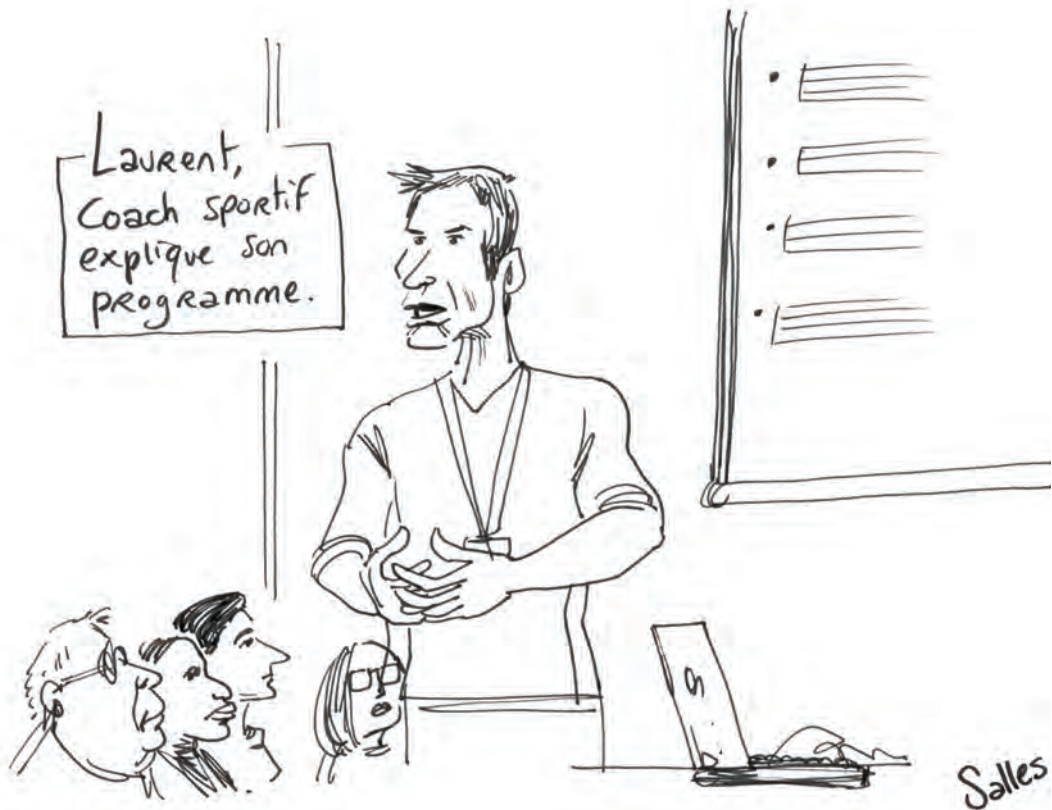 Laurent,
Coach sportif
explique son
programme.
Salles